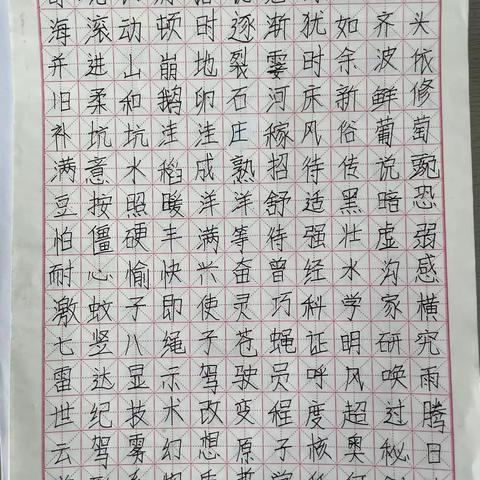 海滚动顿时逐渐犹如齐头
并进山崩地裂霎时余波依
旧柔和鹅卵石河床新鲜修
补坑坑洼洼庄稼风俗葡萄
满意水稻成熟招待传说豌
豆按照暖洋洋舒适黑暗恐
怕僵硬丰满等待强壮虚弱
耐心愉快兴奋曾经水沟感
激蚊子即使灵巧科学家横
七竖八绳子苍蝇证明研究
雷达显示驾驶员呼风唤雨
世纪技术改变程度超过腾
云驾雾幻想原子核奥秘日